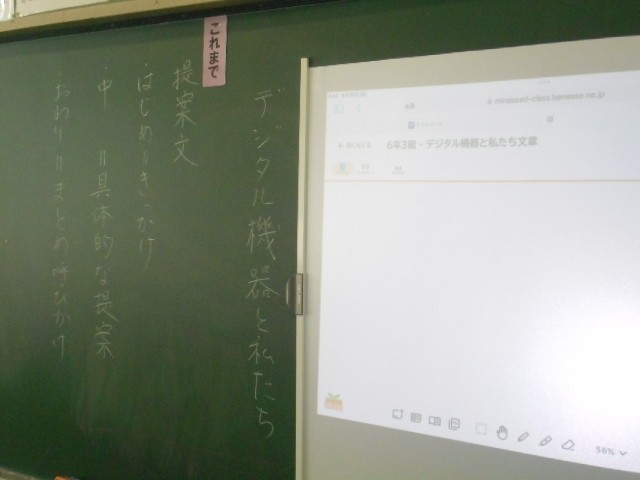 これまで
デジタル機器と私たち
提案文
・はじめ=きっかけ
・中 =具体的な提案
・おわり=まとめ・呼びかけ
miraiseed-class.benesse.ne.jp
6年3組・デジタル機器と私たち文章
56%